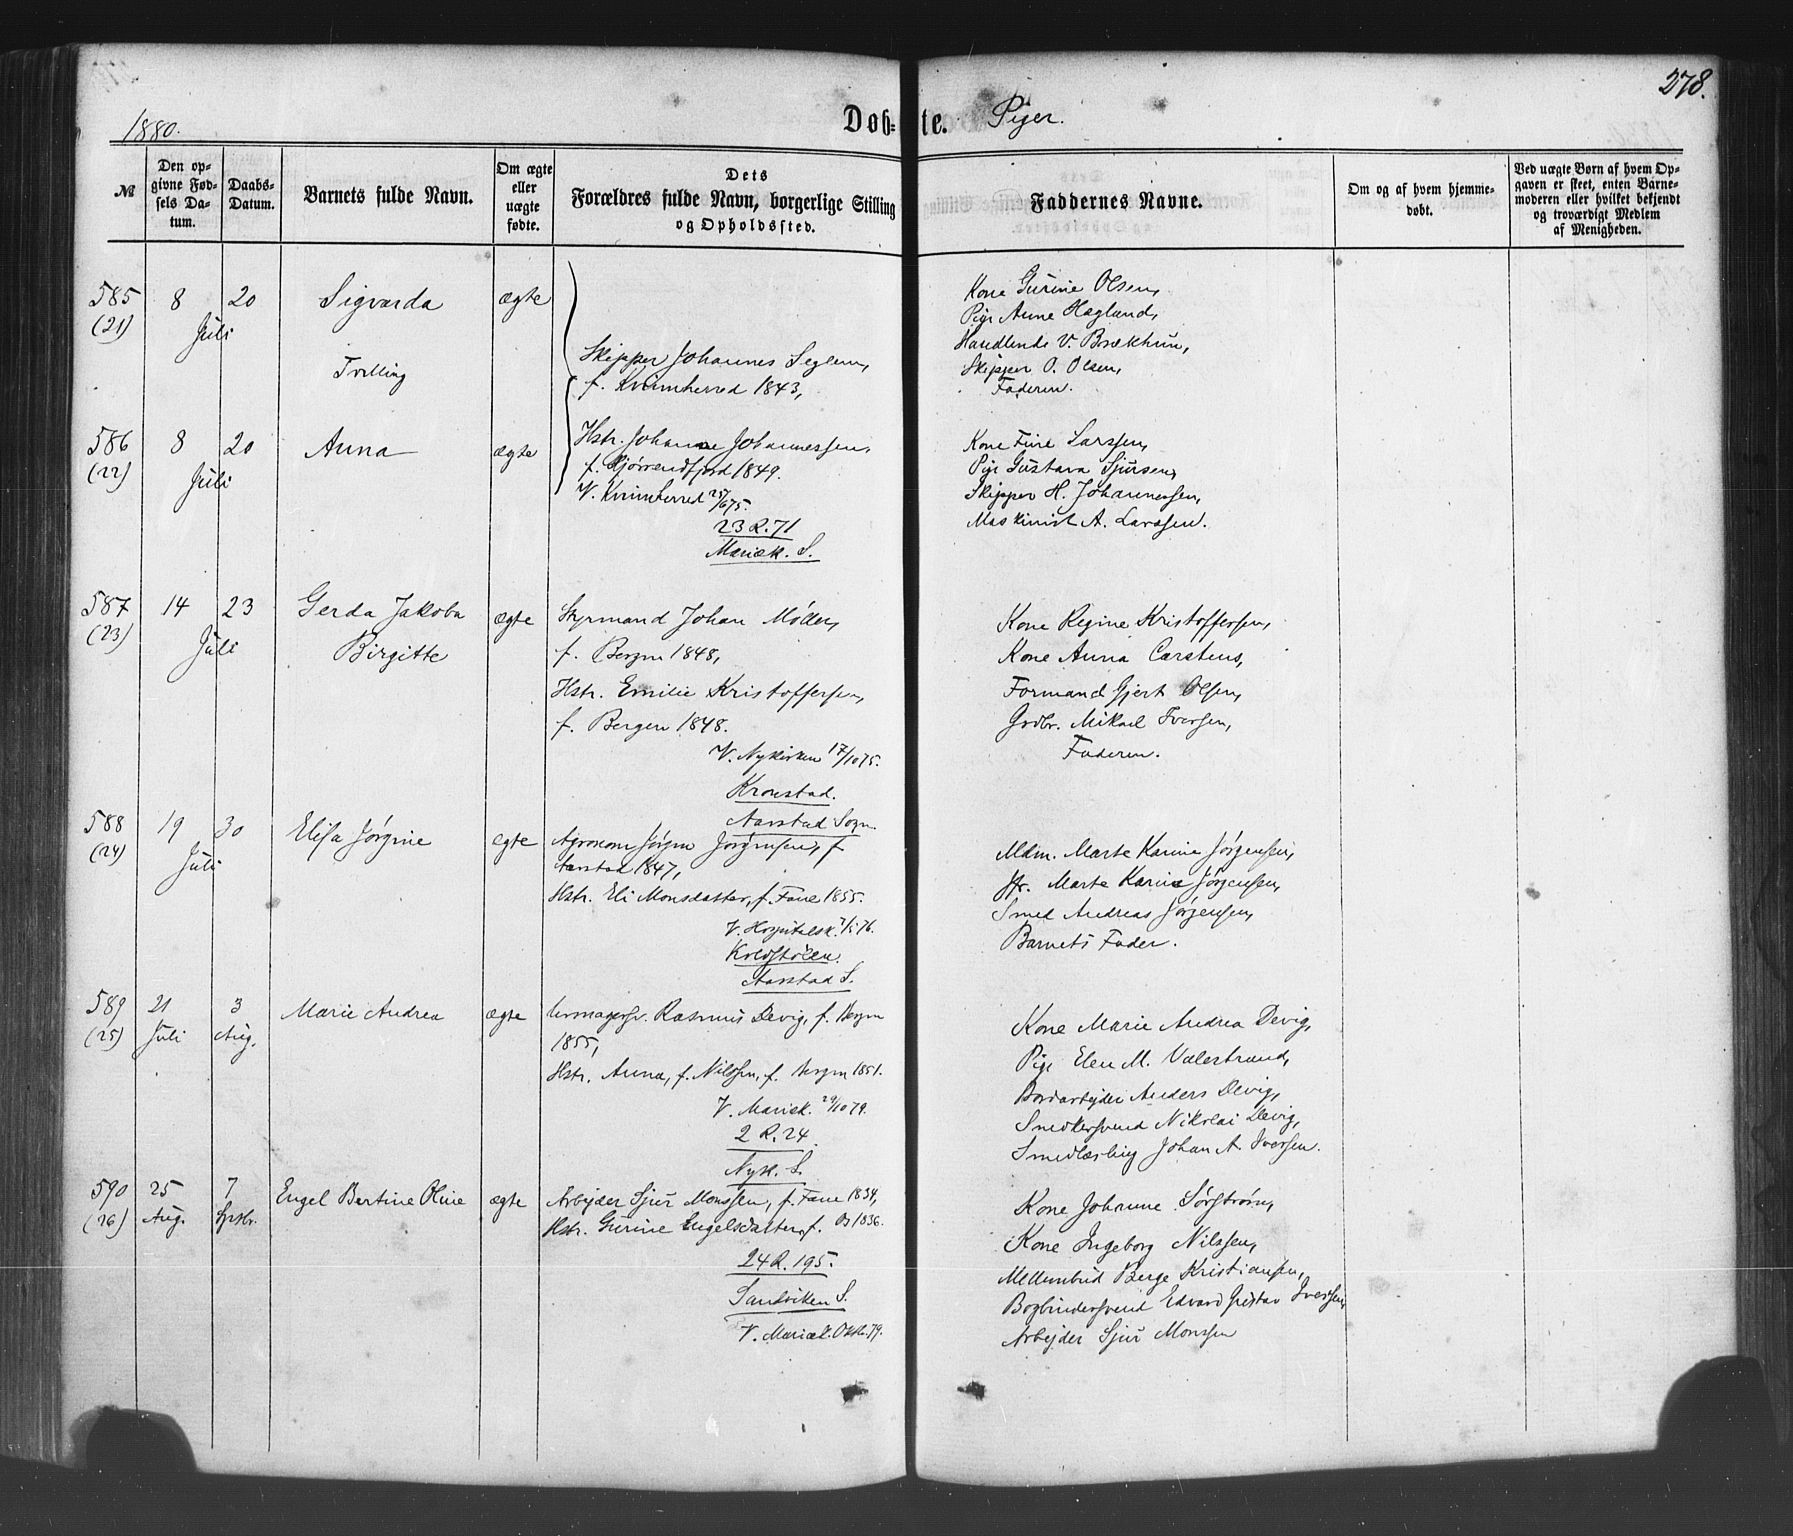 278.
1880.
Døb=te. Piger.
№
Den op-
givne Fød-
sels Da-
tum.
Daabs-
Datum.
Barnets fulde Navn.
Om ægte
eller
uægte
fødte.
Dets
Forældres fulde Navn, borgerlige Stilling
og Opholdssted.
Faddernes Navne.
Om og af hvem hjemme-
døbt.
Ved uægte Børn af hvem Op-
gaven er skeet, enten Barne-
moderen eller hvilket bekjendt
og troværdigt Medlem
af Menigheden.
585 8 20 Sigvarda ægte
(21) Juli
Tvilling
Skipper Johannes Seglem,
f. Kvinnherred 1843,
Kone Gurine Olsen,
Pige Anne Haglund,
Handlende V. Brækhun,
Skipper O. Olsen,
Faderen.
586 8 20 Anna ægte
(22) Juli
Hstr. Johanne Johannessen,
1849.
V. Kvinnherred 25/6 75.
23 R. 71
Mariæk. S.
Kone Fine Larssen,
Pige Gustava Sjursen,
Skipper H. Johannessen,
Maskinist A. Larssen.
587 14 23 Gerda Jakoba ægte
(23) Juli Birgitte
Styrmand Johan Møller,
f. Bergen 1848,
Hstr. Emilie Kristoffersen,
f. Bergen 1848.
V. Nykirken 17/10 75.
Kronstad.
Aarstad Sogn.
Kone Regine Kristoffersen,
Kone Anna Carstens,
Formand Gjert Olsen,
Grdbr. Mikael Iversen,
Faderen.
588 19 30 Elisa Jørgine ægte
(24) Juli
Agronom Jørgen Jørgensen, f.
Aarstad 1847,
Hstr. Eli Monsdatter, f. Fane 1855.
V. Hospitalsk. 76.
Koldstølen.
Aarstad S.
Mdm. Marte Karine Jørgensen,
Jfr. Marte Karine Jørgensen,
Smed Andreas Jørgensen,
Barnets Fader.
589 21 3 Marie Andrea ægte
(25) Juli Aug.
Urmagersv. Rasmus Devig, f. Bergen
1855,
Hstr. Anna, f. Nilssen, f. Bergen 1851.
V. Mariek. 29/10 79.
2 R. 24.
Nyk. S.
Kone Marie Andrea Devig,
Pige Elen M. Valestrand,
Bordarbejder Anders Devig,
Smedkersvend Nikolai Devig,
Smedlærling Johan A. Iversen.
590 25 7 Engel Bertine Oline ægte
(26) Aug. Septbr.
Arbejder Sjur Monssen, f. Fane 1834,
Hstr. Gurine Engelsdatter, f. Os 1836.
24 R. 195.
Sandviken S.
V. Mariæk. Oktb. 79.
Kone Johanne Sørstrøm,
Kone Ingeborg Nilssen,
Berge Kristiansen,
Bogbindersvend Edvard Gustav Iversen,
Arbejder Sjur Monssen